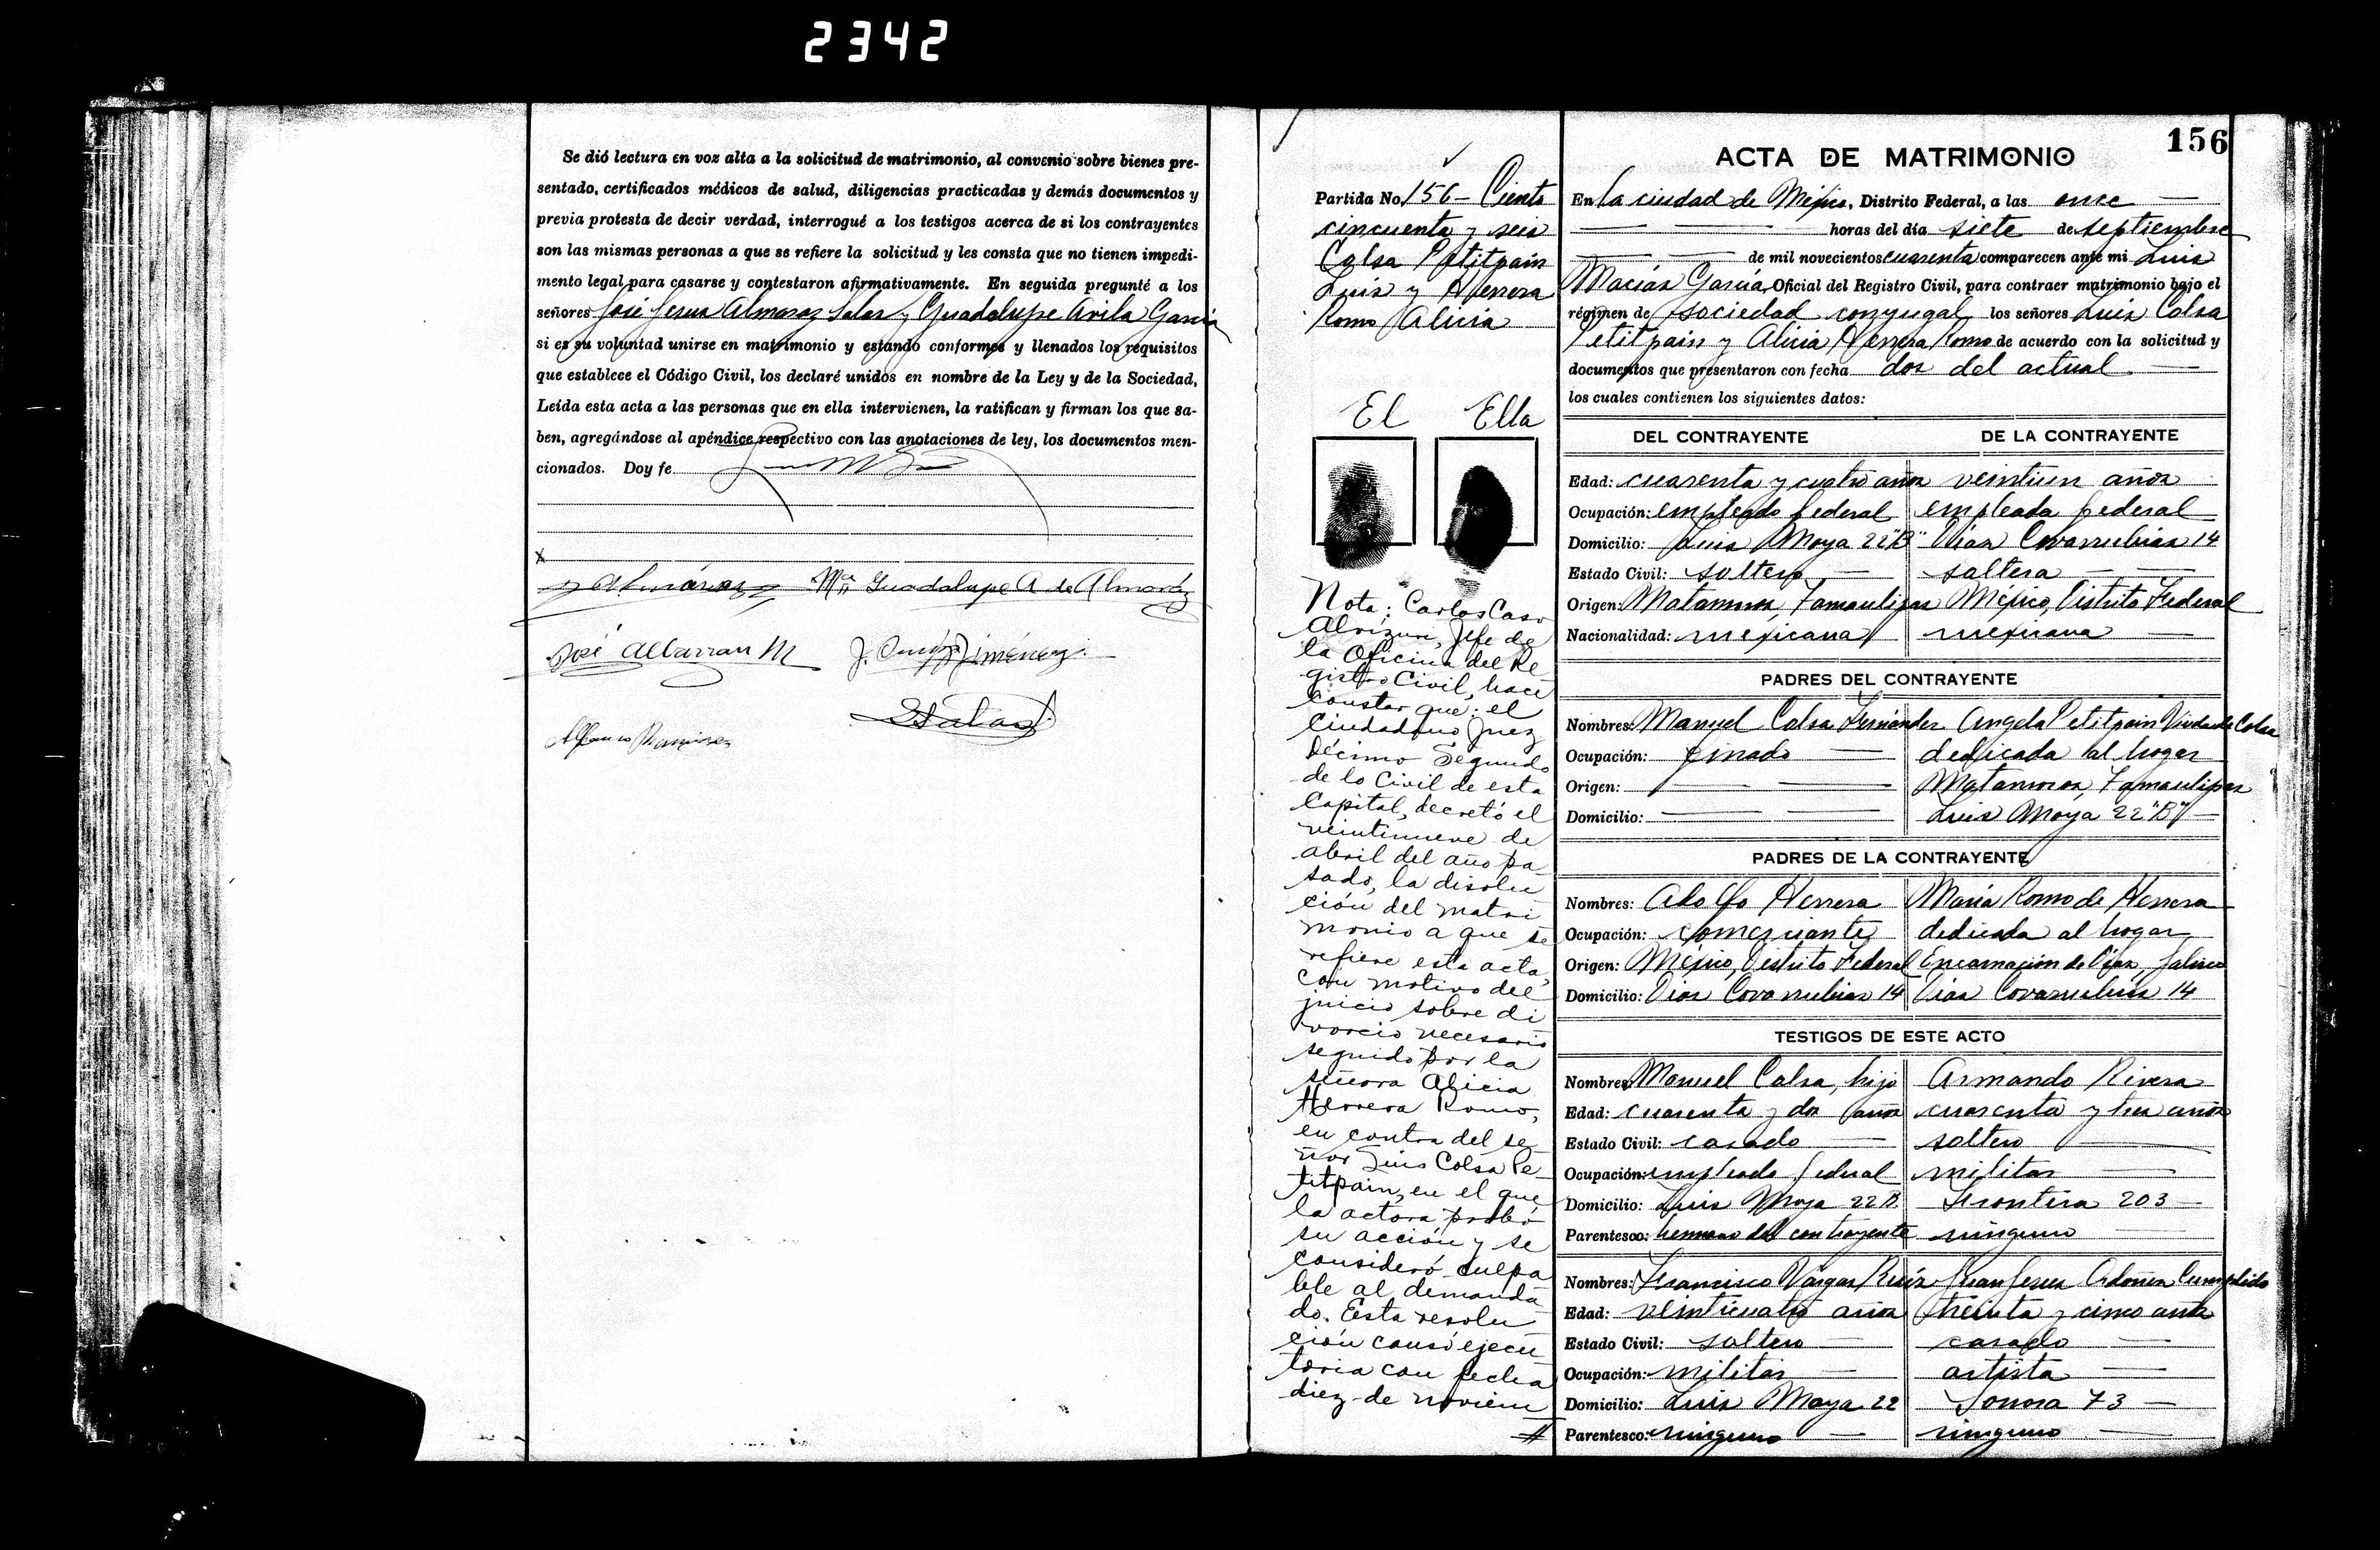 2342
Se dió lectura en voz alta a la solicitud de matrimonio, al convenio sobre bienes pre-
sentado, certificados médicos de salud, diligencias practicadas y demás documentos y
previa protesta de decir verdad, interrogué a los testigos acerca de si los contrayentes
son las mismas personas a que se refiere la solicitud y les consta que no tienen impedi-
mento legal para casarse y contestaron afirmativamente. En seguida pregunté a los
señores José Jesus Almaraz Salas y Guadalupe Avila Garcia
si es su voluntad unirse en matrimonio y estando conformes y llenados los requisitos
que establece el Código Civil, los declaré unidos en nombre de la Ley y de la Sociedad,
Leída esta acta a las personas que en ella intervienen, la ratifican y firman los que sa-
ben, agregándose al apéndice respectivo con las anotaciones de ley, los documentos men-
cionados. Doy fe
x
Mª Guadalupe A de Almaráz
José Albarran M J. Jiménez
Salas
Alfonso Ramirez
156
Partida No 156 - Ciento
cincuenta y seis
Colsa Petitpain
Luis y Herrera
Romo Alicia
El Ella
Nota: Carlos Caso
Alvizuri, Jefe de
la Oficina del Re
gistro Civil, hace
constar que: el
Ciudadano Juez
Décimo Segundo
de lo Civil de esta
Capital, decretó el
veintinueve de
abril del año pa
sado, la disolu
ción del matri
monio a que se
refiere esta acta,
con motivo del
juicio sobre di
vorcio necesario
seguido por la
señora Alicia
Herrera Romo,
en contra del se
ñor Luis Colsa Pe
titpain, en el que
la actora probó
su acción y se
consideró culpa
ble al demanda
do. Esta resolu
ción causó ejecu
toria con fecha
diez de noviem
#
ACTA DE MATRIMONIO
En la ciudad de México, Distrito Federal, a las once
horas del día siete de septiembre
de mil novecientos cuarenta comparecen ante mi Luis
Macías García, Oficial del Registro Civil, para contraer matrimonio bajo el
régimen de sociedad conyugal los señores Luis Colsa
Petitpain y Alicia Herrera Romo de acuerdo con la solicitud y
documentos que presentaron con fecha dos del actual
los cuales contienen los siguientes datos:
DEL CONTRAYENTE DE LA CONTRAYENTE
Edad: cuarenta y cuatro años veintiun años
Ocupación: empleado federal empleada federal
Domicilio: Luis Moya 22 "B" Días Covarrubias 14
Estado Civil: soltero soltera
Origen: Matamoros, Tamaulipas México, Distrito Federal
Nacionalidad: mexicana mexicana
PADRES DEL CONTRAYENTE
Nombres: Manuel Colsa Fernández Angela Petitpain Viuda de Colsa
Ocupación: finado dedicada al hogar
Origen: Matamoros, Tamaulipas
Domicilio: Luis Moya 22 "B"
PADRES DE LA CONTRAYENTE
Nombres: Adolfo Herrera María Romo de Herrera
Ocupación: comerciante dedicada al hogar
Origen: México, Distrito Federal Encarnación de Díaz, Jalisco
Domicilio: Días Covarrubias 14 Días Covarrubias 14
TESTIGOS DE ESTE ACTO
Nombres: Manuel Colsa, hijo Armando Rivera
Edad: cuarenta y dos años cuarenta y tres años
Estado Civil: casado soltero
Ocupación: empleado federal militar
Domicilio: Luis Moya 22 B. Frontera 203
Parentesco: hermano del contrayente ninguno
Nombres: Francisco Vargas Ruiz Juan Jesus Ordoñez Cumplido
Edad: veinticuatro años treinta y cinco años
Estado Civil: soltero casado
Ocupación: militar artista
Domicilio: Luis Moya 22 Sonora 73
Parentesco: ninguno ninguno